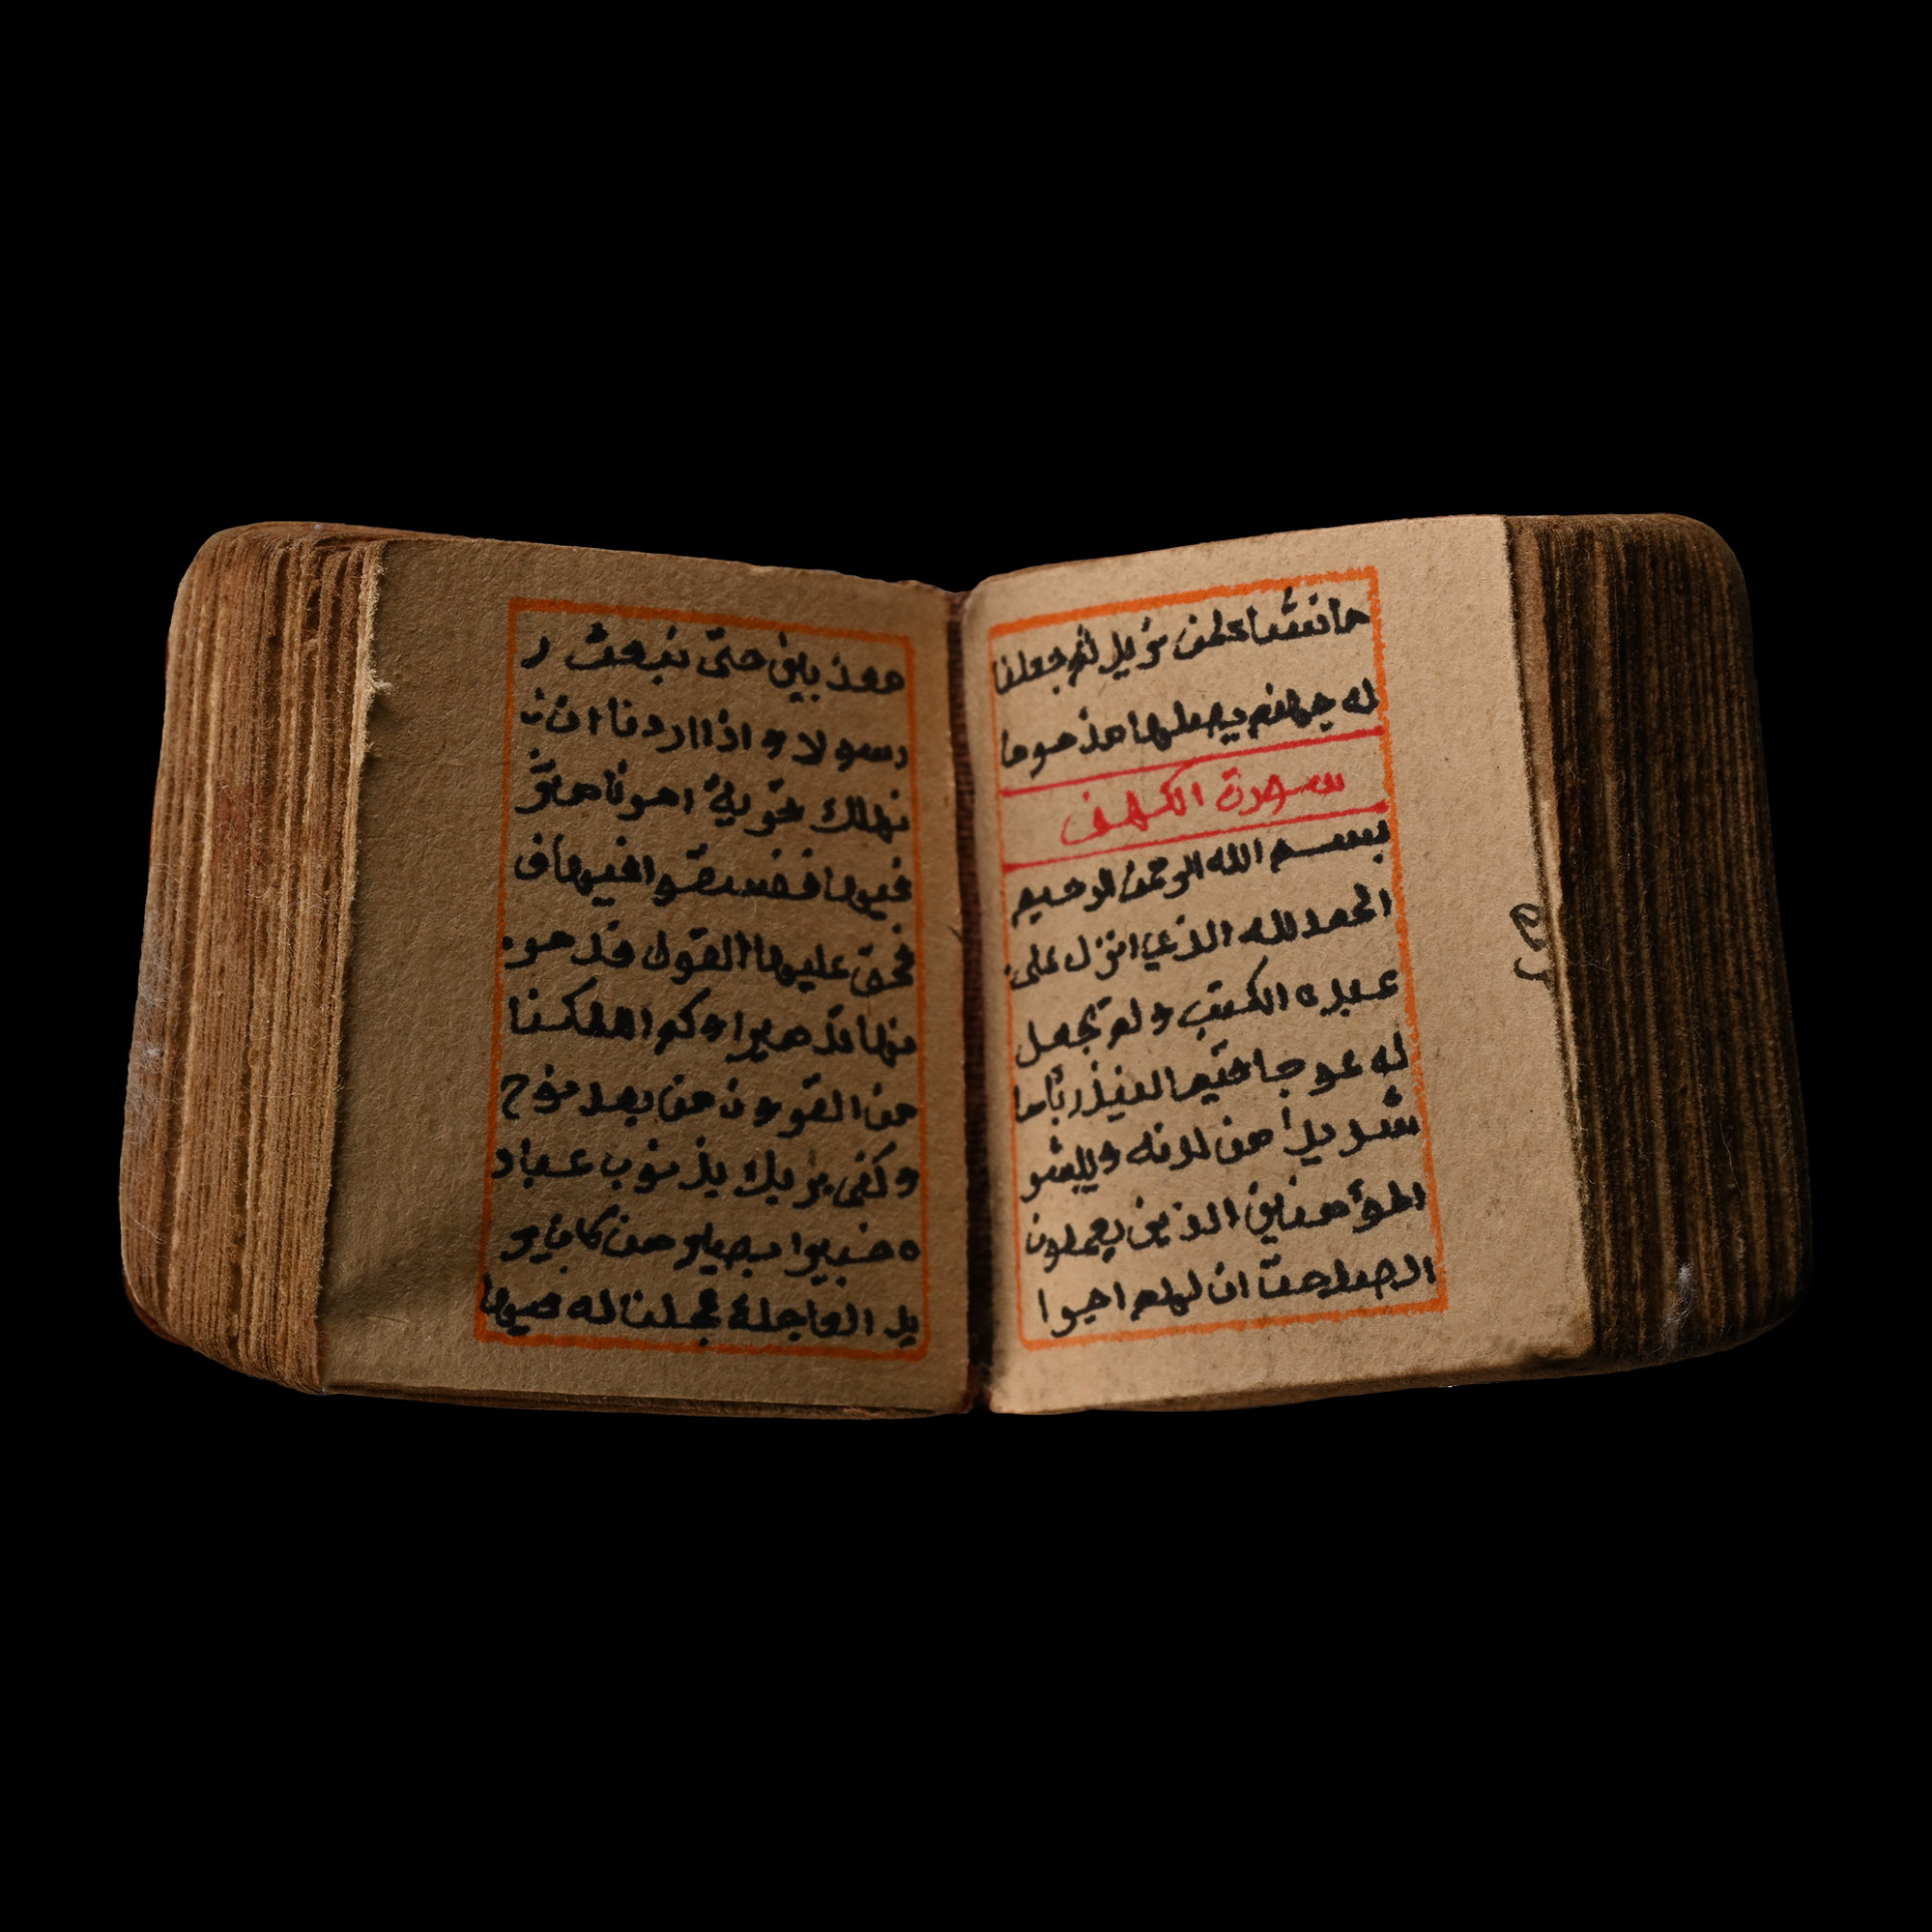 ما نشا لمن نريد ثم جعلنا
له جهنم يصلها مذموما
سورة الكهف
بسم الله الرحمن الرحيم
الحمد لله الذي انزل على
عبده الكتب ولم يجعل
له عوجا قيما لينذر باسا
شديدا من لدنه ويبشر
المؤمنين الذين يعملون
الصلحت ان لهم اجرا
معذبين حتى نبعث ر
رسولا و اذا اردنا ان ن
نهلك قرية امرنا متر
فيها ففسقوا فيها ف
فحق عليها القول فدمر
نها تدميرا وكم اهلكنا
من القرون من بعد نوح
وكفى بربك بذنوب عباد
ه خبيرا بصيرا من كان ير
يد العاجلة عجلنا له فيها